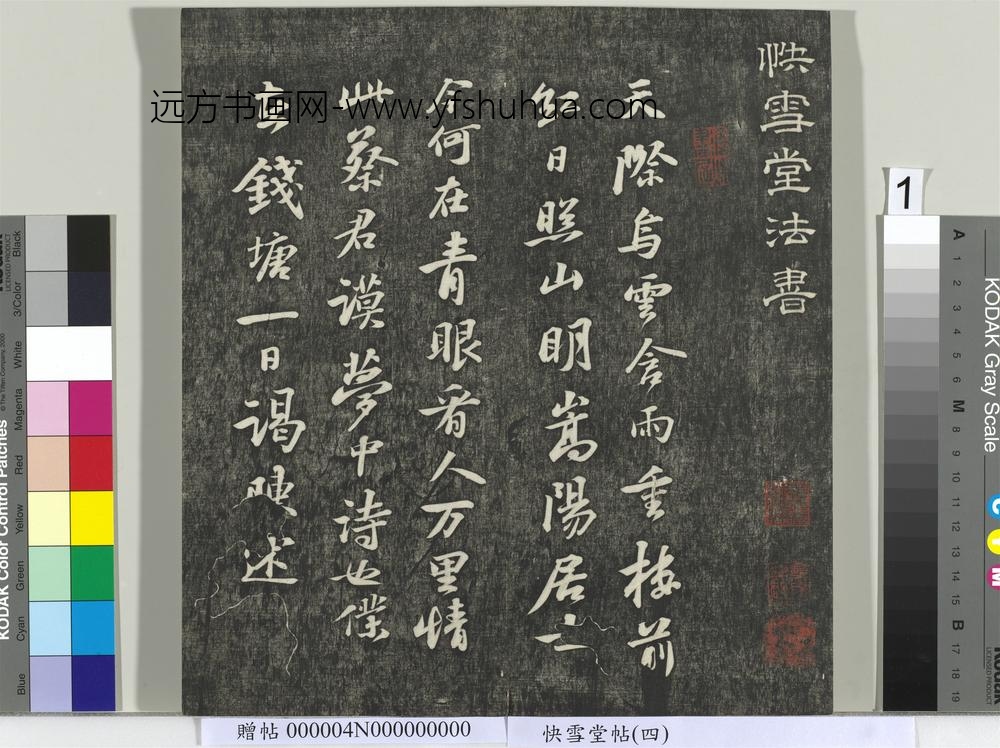 快雪堂法書
天際烏雲含雨重樓前
紅日照山明嵩陽居士
今何在青眼看人万里情
此蔡君謨夢中詩也僕
在錢塘一日謁陳述
远方书画网-www.yfshuhua.com
1
贈帖 000004N000000000
快雪堂帖(四)
KODAK Color Control Patches
© The Tiffen Company, 2000
LICENSED PRODUCT
Blue
Cyan
Green
Yellow
Red
Magenta
White
3/Color
Black
KODAK Gray Scale
LICENSED PRODUCT
C
Y
M
A 1 2 3 4 5 6 M 8 9 10 11 12 13 14 15 B 17 18 19